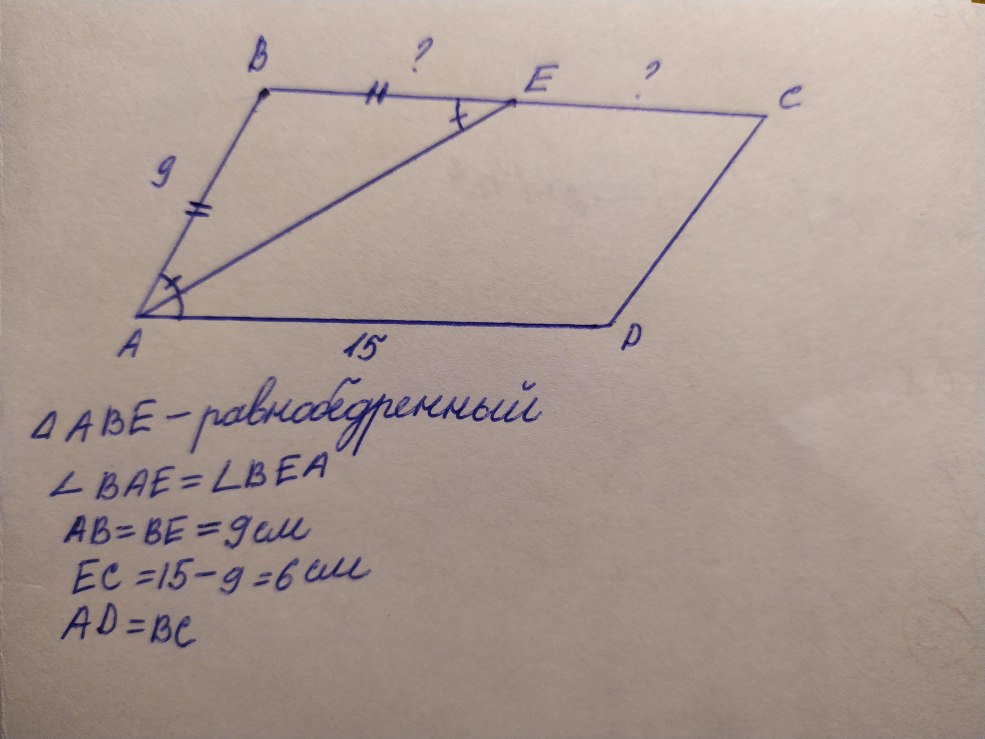 B ? E ? C
9
A 15 D
△ABE – равнобедренный
∠BAE = ∠BEA
AB = BE = 9 см
EC = 15 – 9 = 6 см
AD = BC